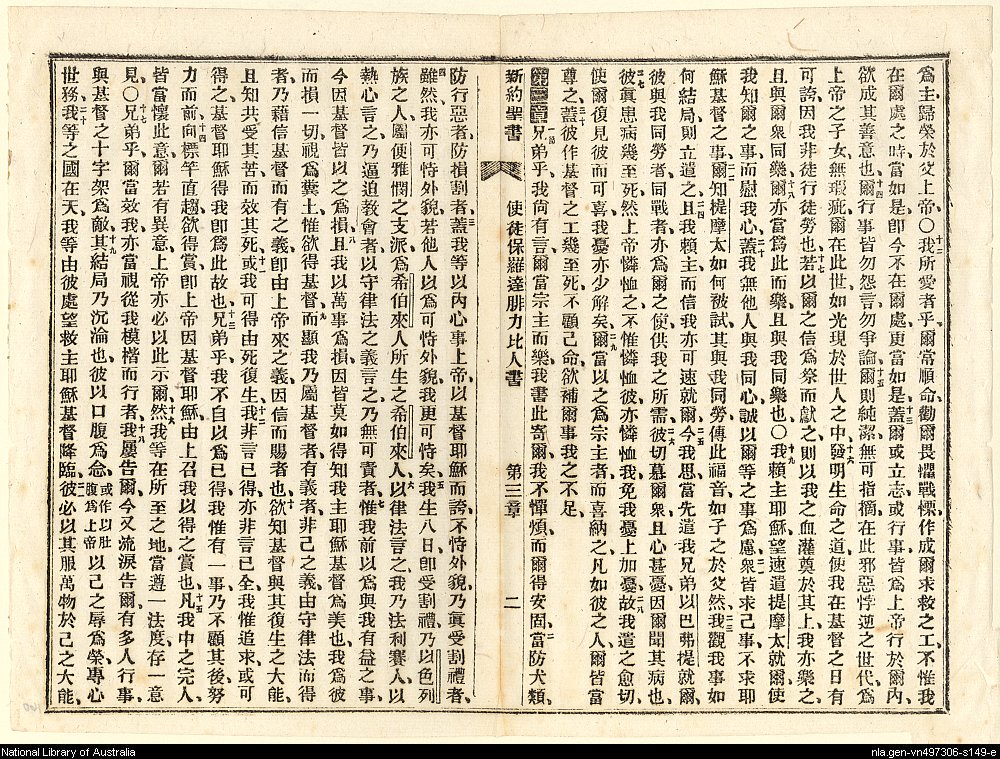 爲主歸榮於父上帝〇十二我所愛者乎爾常順命勸爾畏懼戰慄作成爾求救之工不惟我
在爾處之時當如是卽今不在爾處更當如是十三蓋爾或立志或行事皆爲上帝行於爾內
欲成其善意也十四爾行事皆勿怨言勿爭論十五爾則純潔無可指摘在此邪惡悖逆之世代爲
上帝之子女無瑕疵爾在此世如光現於世人之中十六發明生命之道使我在基督之日有
可誇因我非徒行徒勞也十七若以爾之信爲祭而獻之則以我之血灌奠於其上我亦樂之
且與爾衆同樂十八爾亦當爲此而樂且與我同樂也〇十九我賴主耶穌望速遣提摩太就爾使
我知爾之事而慰我心二十蓋我無他人與我同心誠以爾等之事爲慮二一衆皆求己事不求耶
穌基督之事二二爾知提摩太如何被試其與我同勞傳此福音如子之於父然二三我觀我事如
何結局則立遣之二四且我賴主而信我亦可速就爾二五今我思當先遣我兄弟以巴弗提就爾
彼與我同勞者同戰者亦爲爾之使供我之所需二六彼切慕爾衆且心甚憂因爾聞其病也
二七彼眞患病幾至死然上帝憐恤之不惟憐恤彼亦憐恤我免我憂上加憂二八故我遣之愈切
使爾復見彼而可喜我憂亦少解矣二九爾當以之爲宗主者而喜納之凡如彼之人爾皆當
尊之三十蓋彼作基督之工幾至死不顧己命欲補爾事我之不足
第三章一節兄弟乎我尙有言爾當宗主而樂我書此寄爾我不憚煩而爾得安固二當防犬類
新約聖書 使徒保羅達腓力比人書 第三章 二
防行惡者防損割者三蓋我等以內心事上帝以基督耶穌而誇不恃外貌乃眞受割禮者
四雖然我亦可恃外貌若他人以爲可恃外貌我更可恃矣五我生八日卽受割禮乃以色列
族之人屬便雅憫之支派爲希伯來人所生之希伯來人以律法言之我乃法利賽人六以
熱心言之乃逼迫敎會者以守律法之義言之乃無可責者七惟我前以爲與我有益之事
今因基督皆以之爲損八且我以萬事爲損因皆莫如得知我主耶穌基督爲美也我爲彼
而損一切視爲糞土惟欲得基督九而顯我乃屬基督者有義者非己之義由守律法而得
者乃藉信基督而有之義卽由上帝來之義因信而賜者也十欲知基督與其復生之大能
且知共受其苦而效其死十一或我可得由死復生十二我非言已得亦非言已全我惟追求或可
得之基督耶穌得我卽爲此故也十三兄弟乎我不自以爲已得我惟有一事乃不顧其後努
力而前十四向標竿直趨欲得賞卽上帝因基督耶穌由上召我以得之賞也十五凡我中之完人
皆當懷此意爾若有異意上帝亦必以此示爾十六然我等在所至之地當遵一法度存一意
見〇十七兄弟乎爾當效我亦當視從我模楷而行者十八我屢告爾今又流淚告爾有多人行事
與基督之十字架爲敵十九其結局乃沉淪也彼以口腹爲念或作以肚腹爲上帝以己之辱爲榮專心
世務二十我等之國在天我等由彼處望救主耶穌基督降臨二一彼必以其服萬物於己之大能
National Library of Australia
nla.gen-vn497306-s149-e